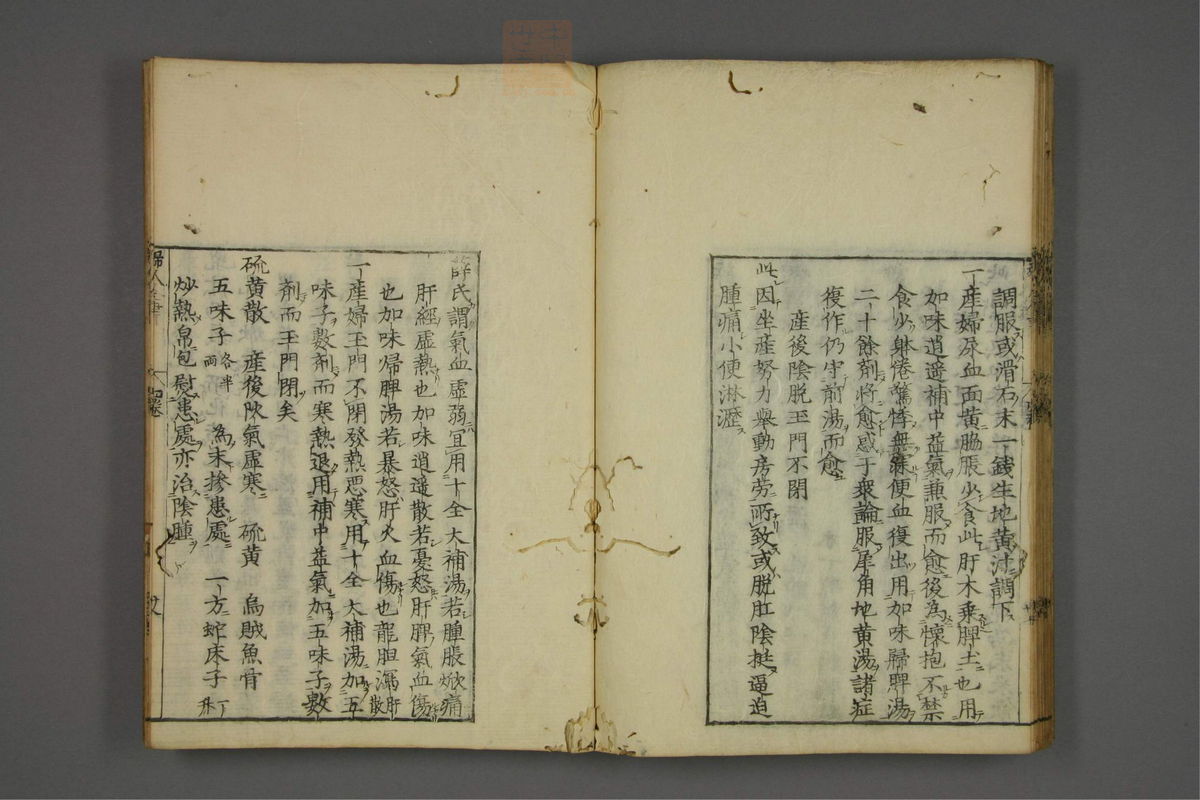 調服或滑石末一錢生地黄汁調下
一産婦尿血面黄脇脹少食此肝木乗脾土也用
如味逍遥補中益氣兼服而愈後為懐抱不禁
食少身倦驚悸無寐便血復出用加味歸脾湯
二十餘剤將愈惑于衆論服犀角地黄湯諸症
復作仍守前湯而愈
産後陰脱玉門不閉
此因坐産努力舉動房労所致或脱肛陰挺逼迫
腫痛小便淋瀝
薛氏謂氣血虚弱宜用十全大補湯若腫脹焮痛
肝經虚熱也加味逍遥散若憂怒肝脾氣血傷
也加味帰脾湯若暴怒肝火血傷也龍胆瀉肝散
一産婦玉門不閉發熱悪寒用十全大補湯加五
味子數剤而寒熱退用補中益氣加五味子數
剤而玉門閉矣
硫黄散 産後陰氣虚寒 硫黄 烏賊魚骨
五味子各半両 為末摻患處 一方蛇床子一升
炒熱帛包熨患處亦治陰腫
婦人
四巻
廿